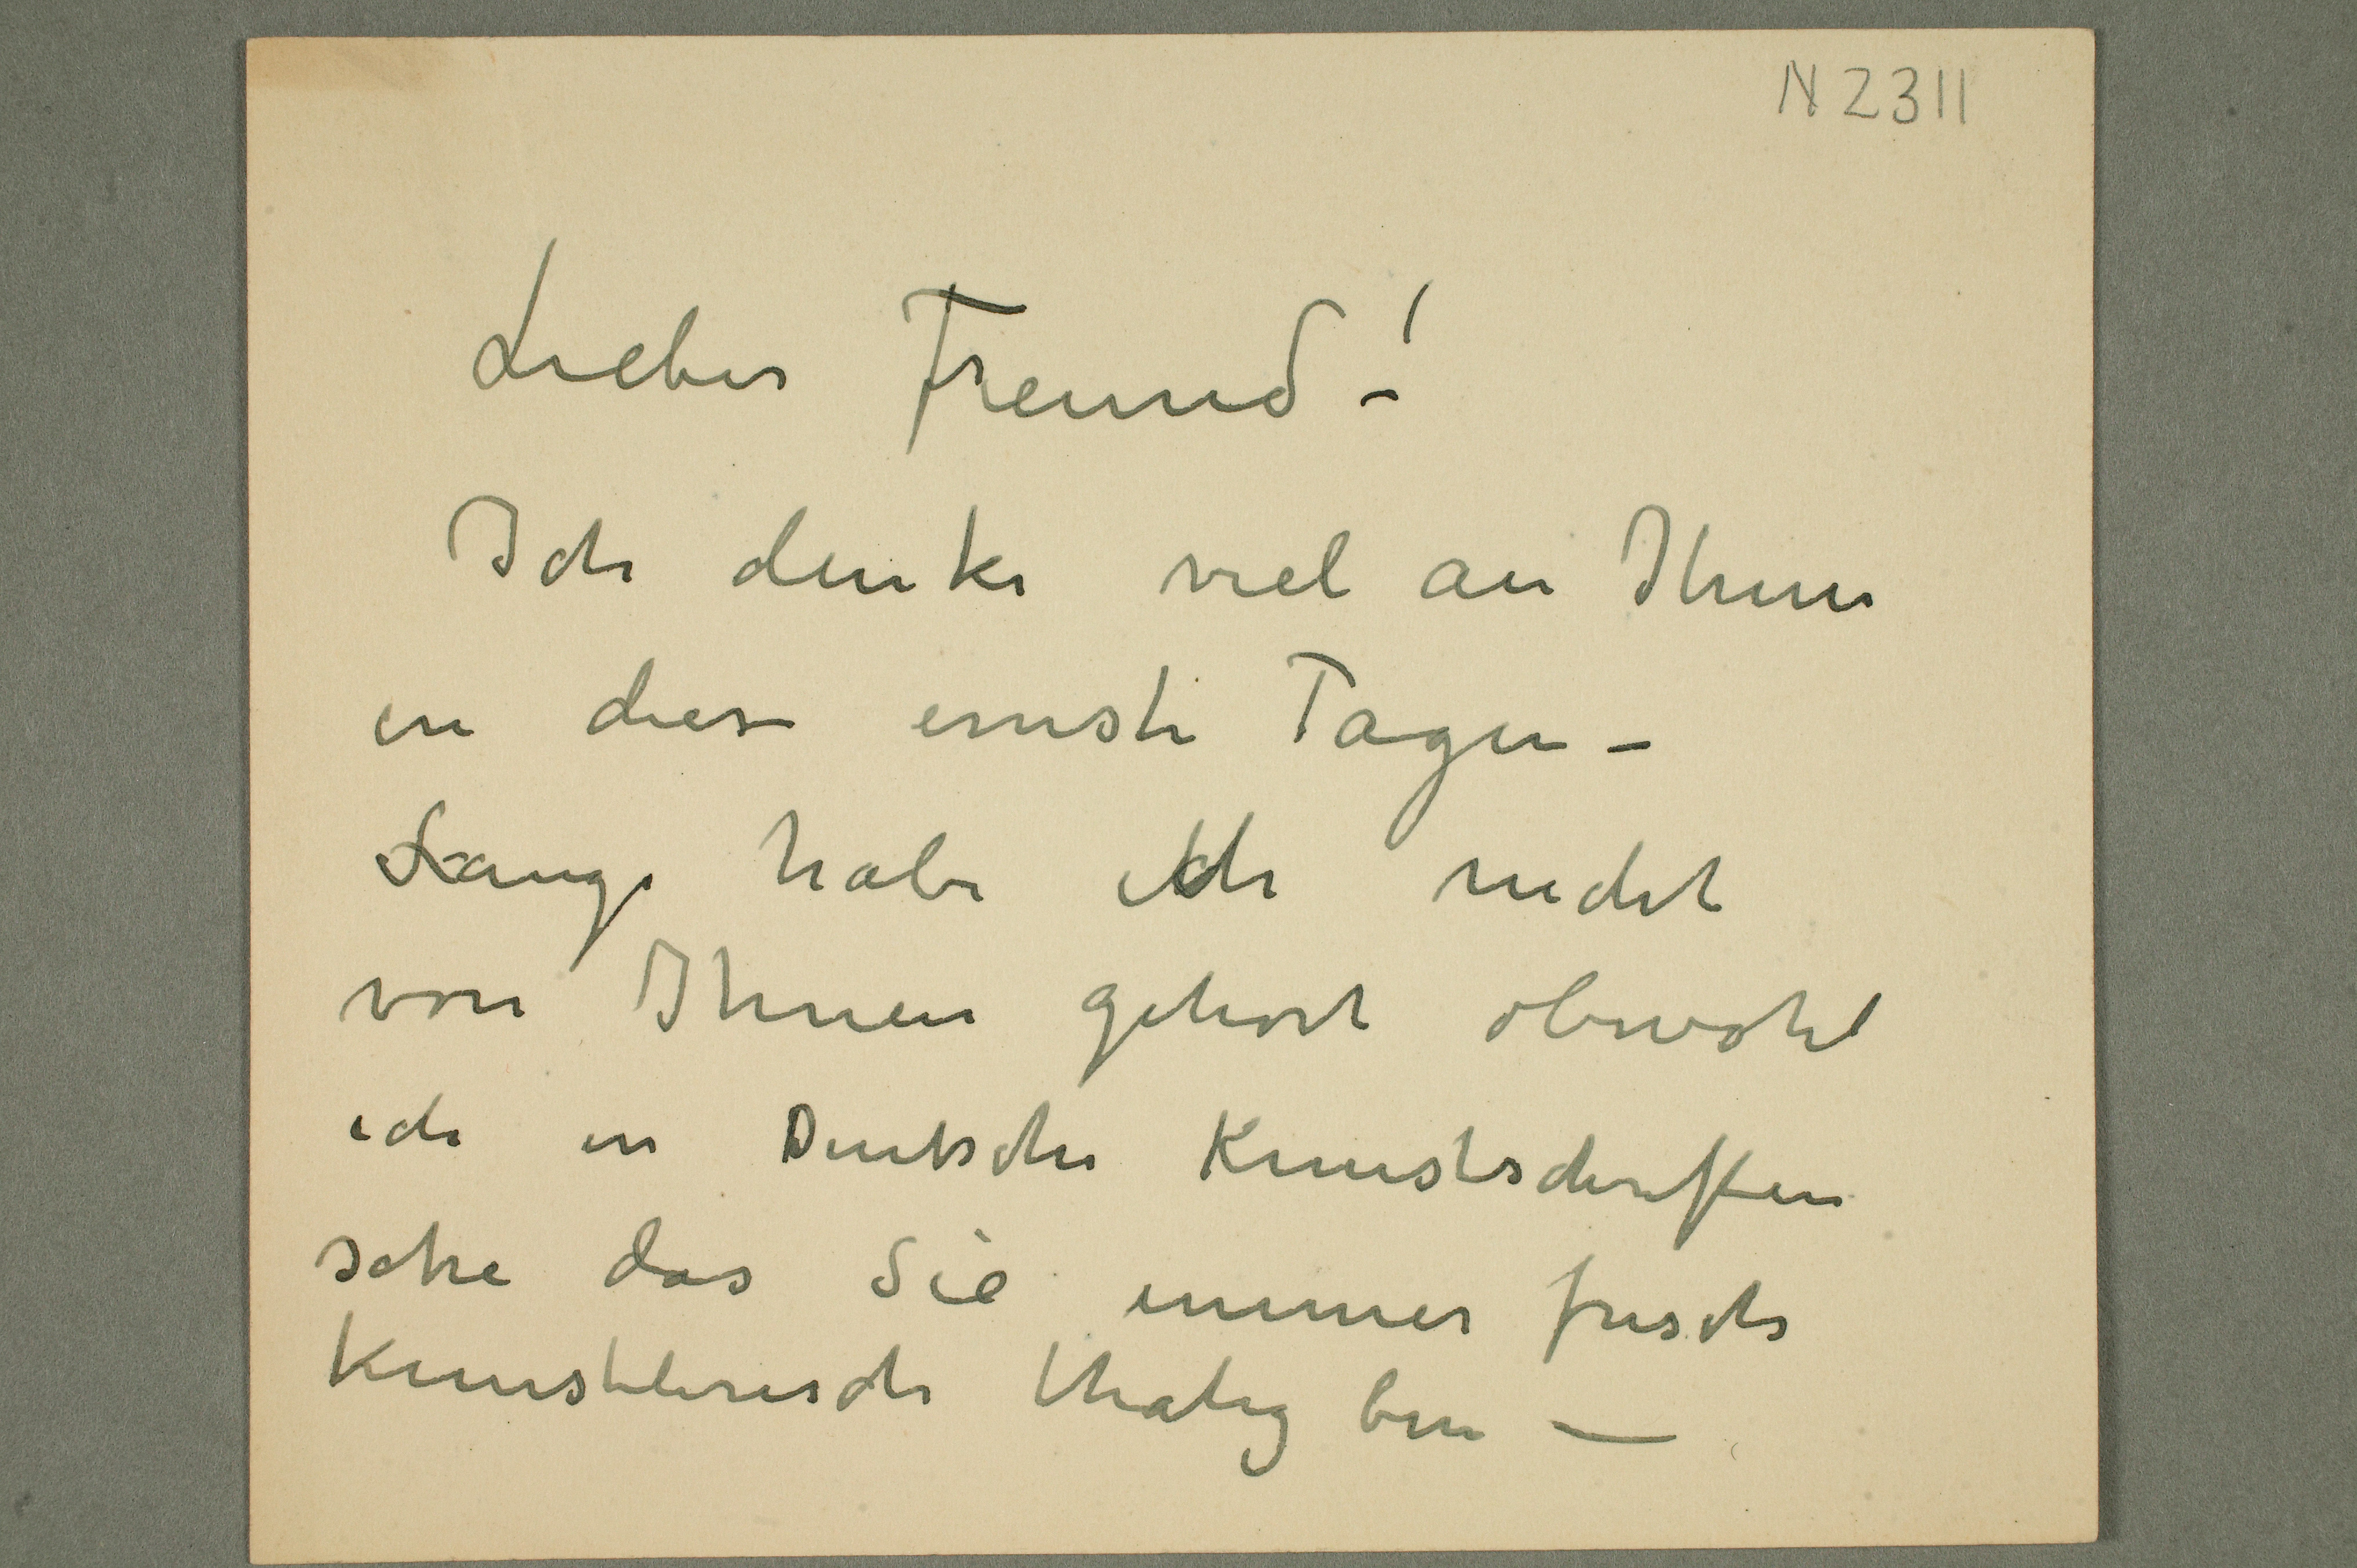 N 2311
Lieber Freund!
Ich denke viel an Ihnen
in diese ernste Tagen –
Lange habe ich nicht
von Ihnen gehort obwohl
ich in Deutsche Kunstschriften
sehe das Sie immer frisch
Kunstlerisch thatig bin —